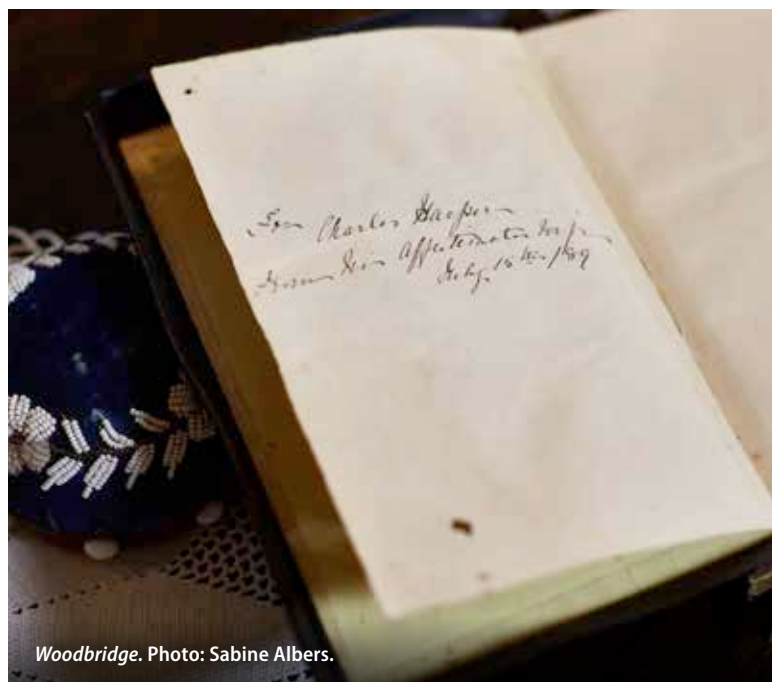 For Charles Harper
From his affectionate wife
July 18
Woodbridge. Photo: Sabine Albers.